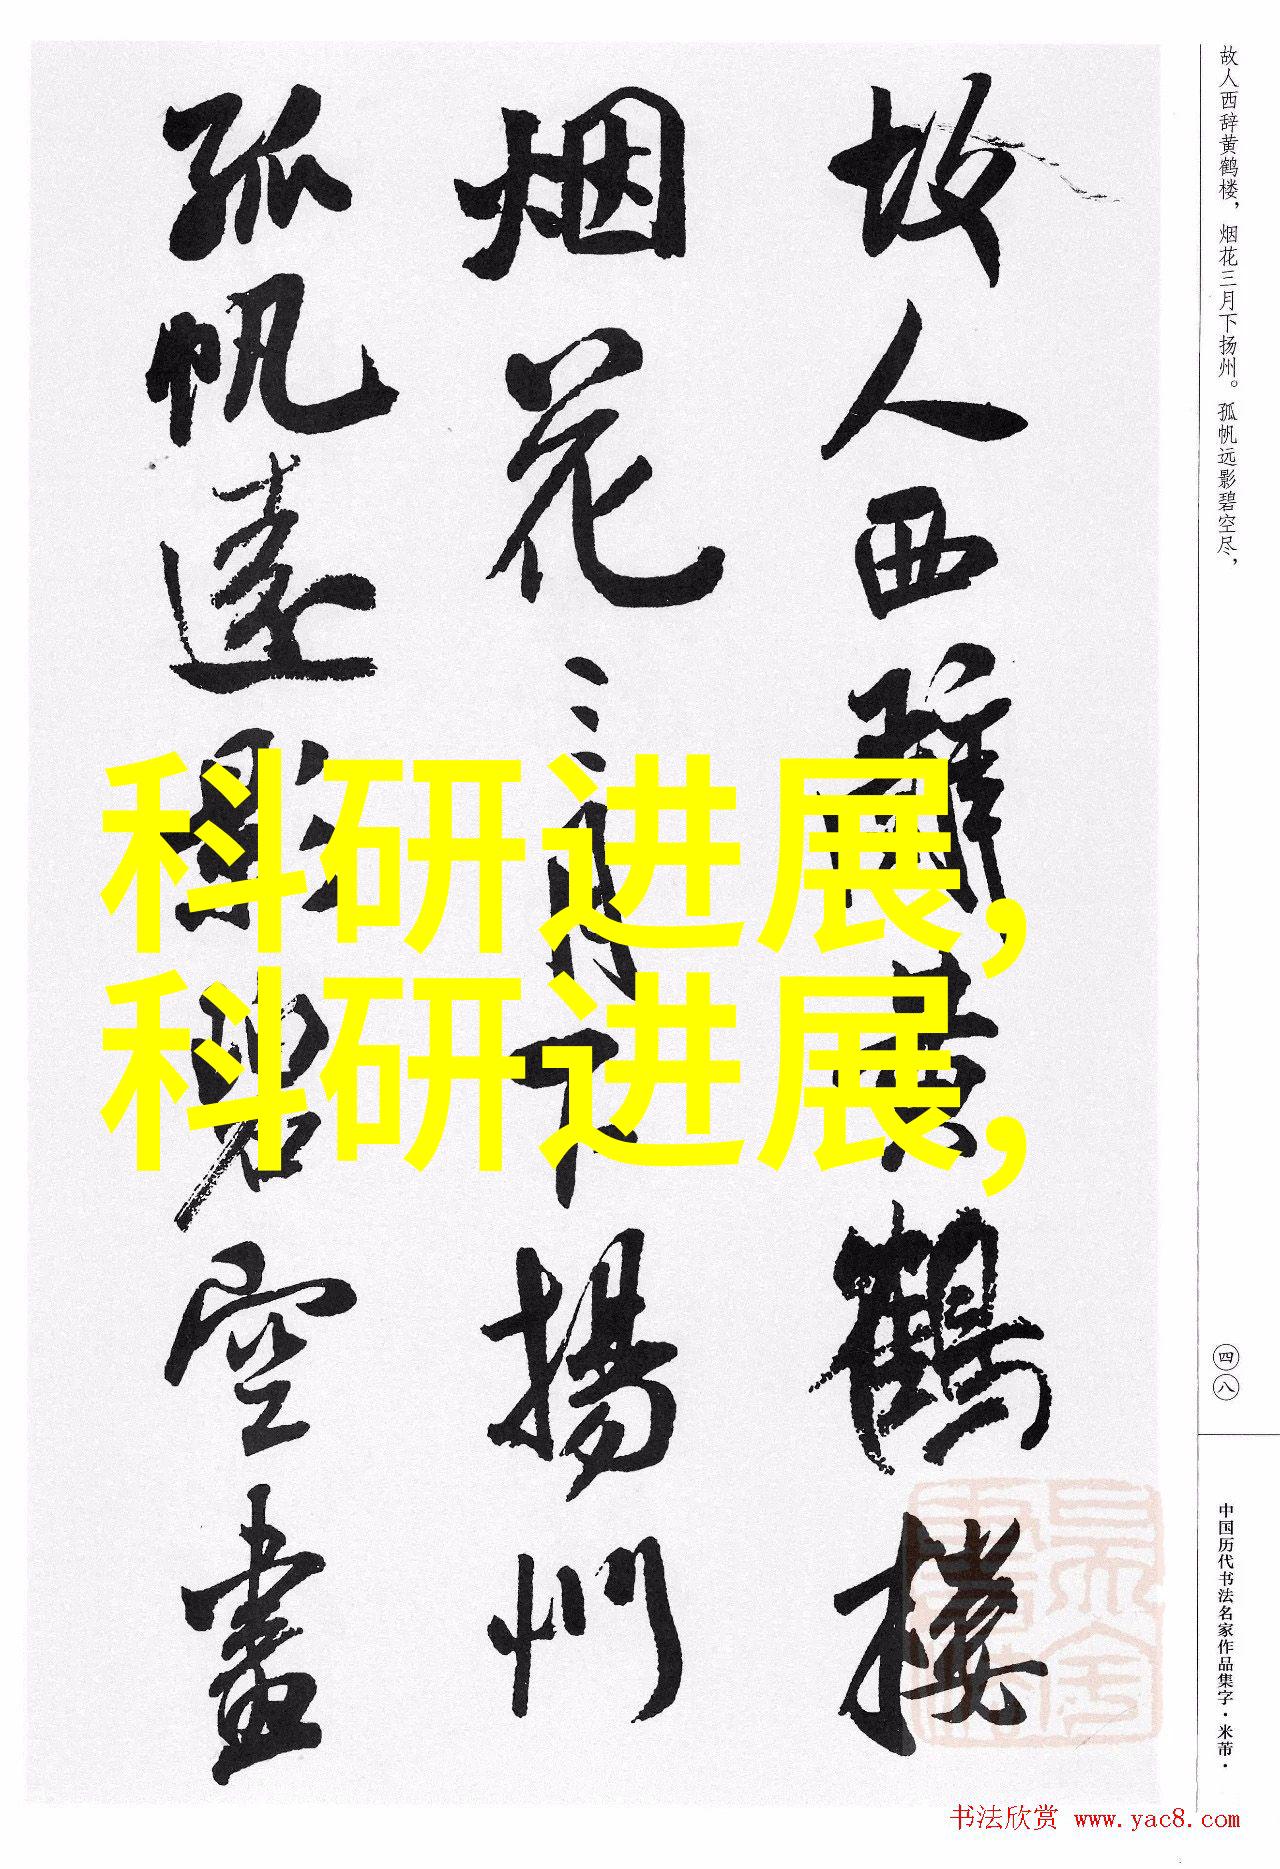 故人西辞黄鹤楼，烟花三月下扬州。孤帆远影碧空尽，
故人西辭黄鹤楼
烟花三月下揚州
孤帆遠影碧空盡
科研进展，
科研进展，
四八
中国历代书法名家作品集字·米芾·
书法欣赏 www.yac8.com